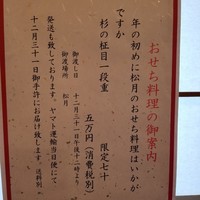 おせち料理の御案内
年の初めに松月のおせち料理はいかが
ですか
杉の柾目一段重　限定七十
五万円（消費税別）
御渡し日　十二月三十一日午後十二時より
御渡場所　松月
発送も致しております。ヤマト運輸当日便にて
十二月三十一日御手許にお届け致します。送料別